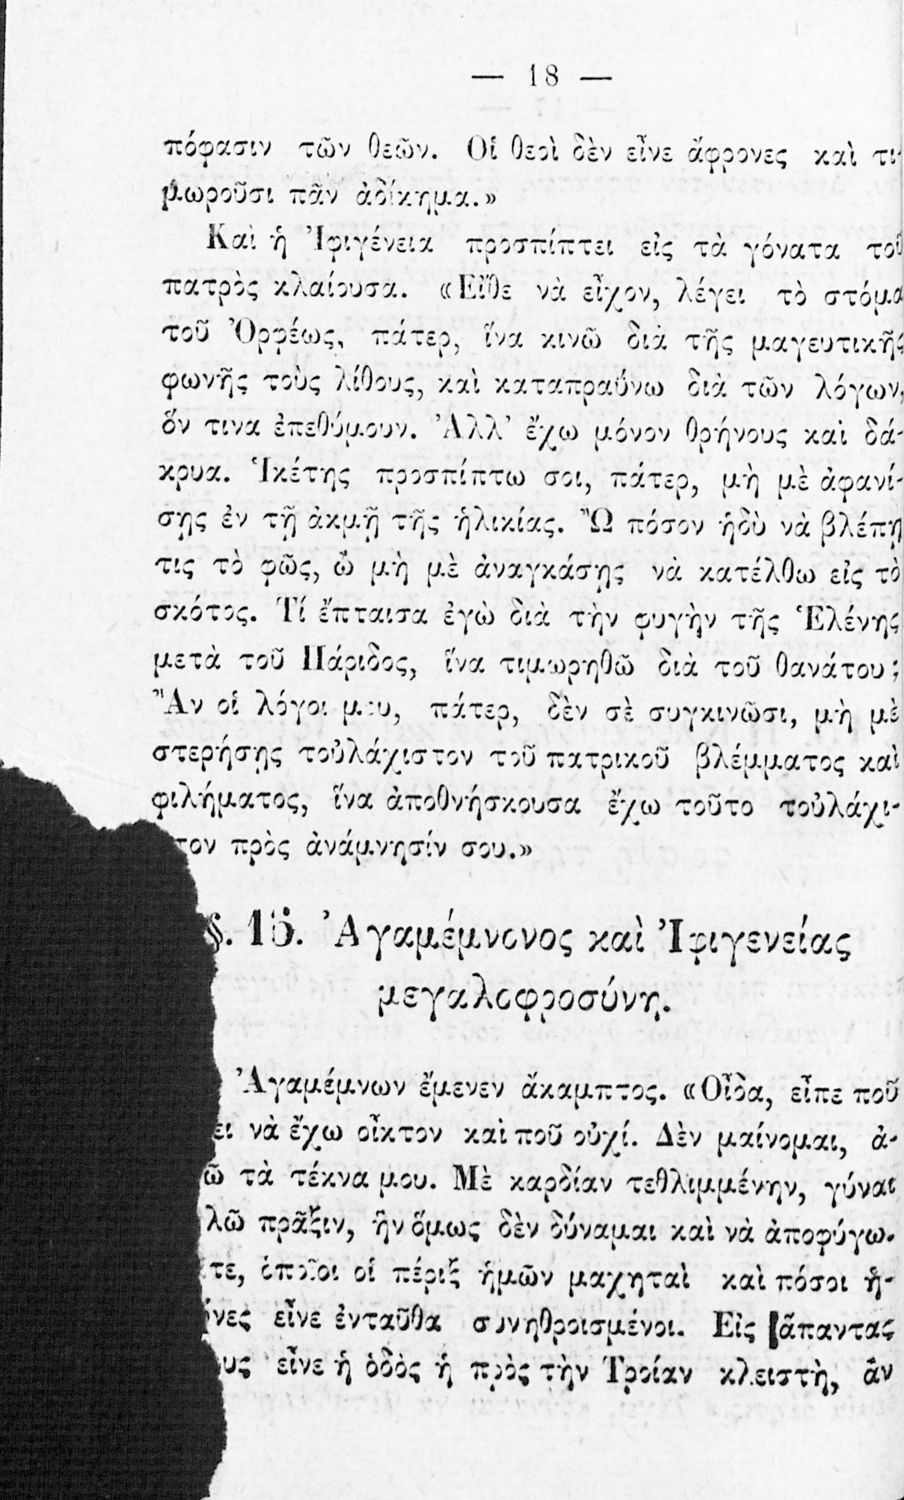 — 18 —
πόφασιν τῶν θεῶν. Οἱ θεοὶ δὲν εἶνε ἄφρονες καὶ τι-
μωροῦσι πᾶν ἀδίκημα.»
Καὶ ἡ Ἰφιγένεια προσπίπτει εἰς τὰ γόνατα τοῦ
πατρὸς κλαίουσα. «Εἴθε νὰ εἶχον, λέγει τὸ στόμα
τοῦ Ὀρφέως, πάτερ, ἵνα κινῶ διὰ τῆς μαγευτικῆς
φωνῆς τοὺς λίθους, καὶ καταπραΰνω διὰ τῶν λόγων,
ὅν τινα ἐπεθύμουν. Ἀλλ' ἔχω μόνον θρήνους καὶ δά-
κρυα. Ἱκέτης προσπίπτω σοι, πάτερ, μὴ μὲ ἀφανί-
σῃς ἐν τῇ ἀκμῇ τῆς ἡλικίας. Ὢ πόσον ἡδὺ νὰ βλέπῃ
τις τὸ φῶς, ὢ μὴ μὲ ἀναγκάσῃς νὰ κατέλθω εἰς τὸ
σκότος. Τί ἔπταισα ἐγὼ διὰ τὴν φυγὴν τῆς Ἑλένης
μετὰ τοῦ Πάριδος, ἵνα τιμωρηθῶ διὰ τοῦ θανάτου;
Ἂν οἱ λόγοι μου, πάτερ, δὲν σὲ συγκινῶσι, μὴ μὲ
στερήσῃς τοὐλάχιστον τοῦ πατρικοῦ βλέμματος καὶ
φιλήματος, ἵνα ἀποθνήσκουσα ἔχω τοῦτο τοὐλάχι-
τον πρὸς ἀνάμνησίν σου.»
§. 15. Ἀγαμέμνονος καὶ Ἰφιγενείας
μεγαλοφροσύνη.
Ἀγαμέμνων ἔμενεν ἄκαμπτος. «Οἶδα, εἶπε ποῦ
ει νὰ ἔχω οἶκτον καὶ ποῦ οὐχί. Δὲν μαίνομαι, ἀ-
ῶ τὰ τέκνα μου. Μὲ καρδίαν τεθλιμμένην, γύναι
λῶ πρᾶξιν, ἣν ὅμως δὲν δύναμαι καὶ νὰ ἀποφύγω.
τε, ὁποῖοι οἱ πέριξ ἡμῶν μαχηταὶ καὶ πόσοι ἡ-
όνες εἶνε ἐνταῦθα συνηθροισμένοι. Εἰς ἅπαντας
υς εἶνε ἡ ὁδὸς ἡ πρὸς τὴν Τροίαν κλειστὴ, ἂν